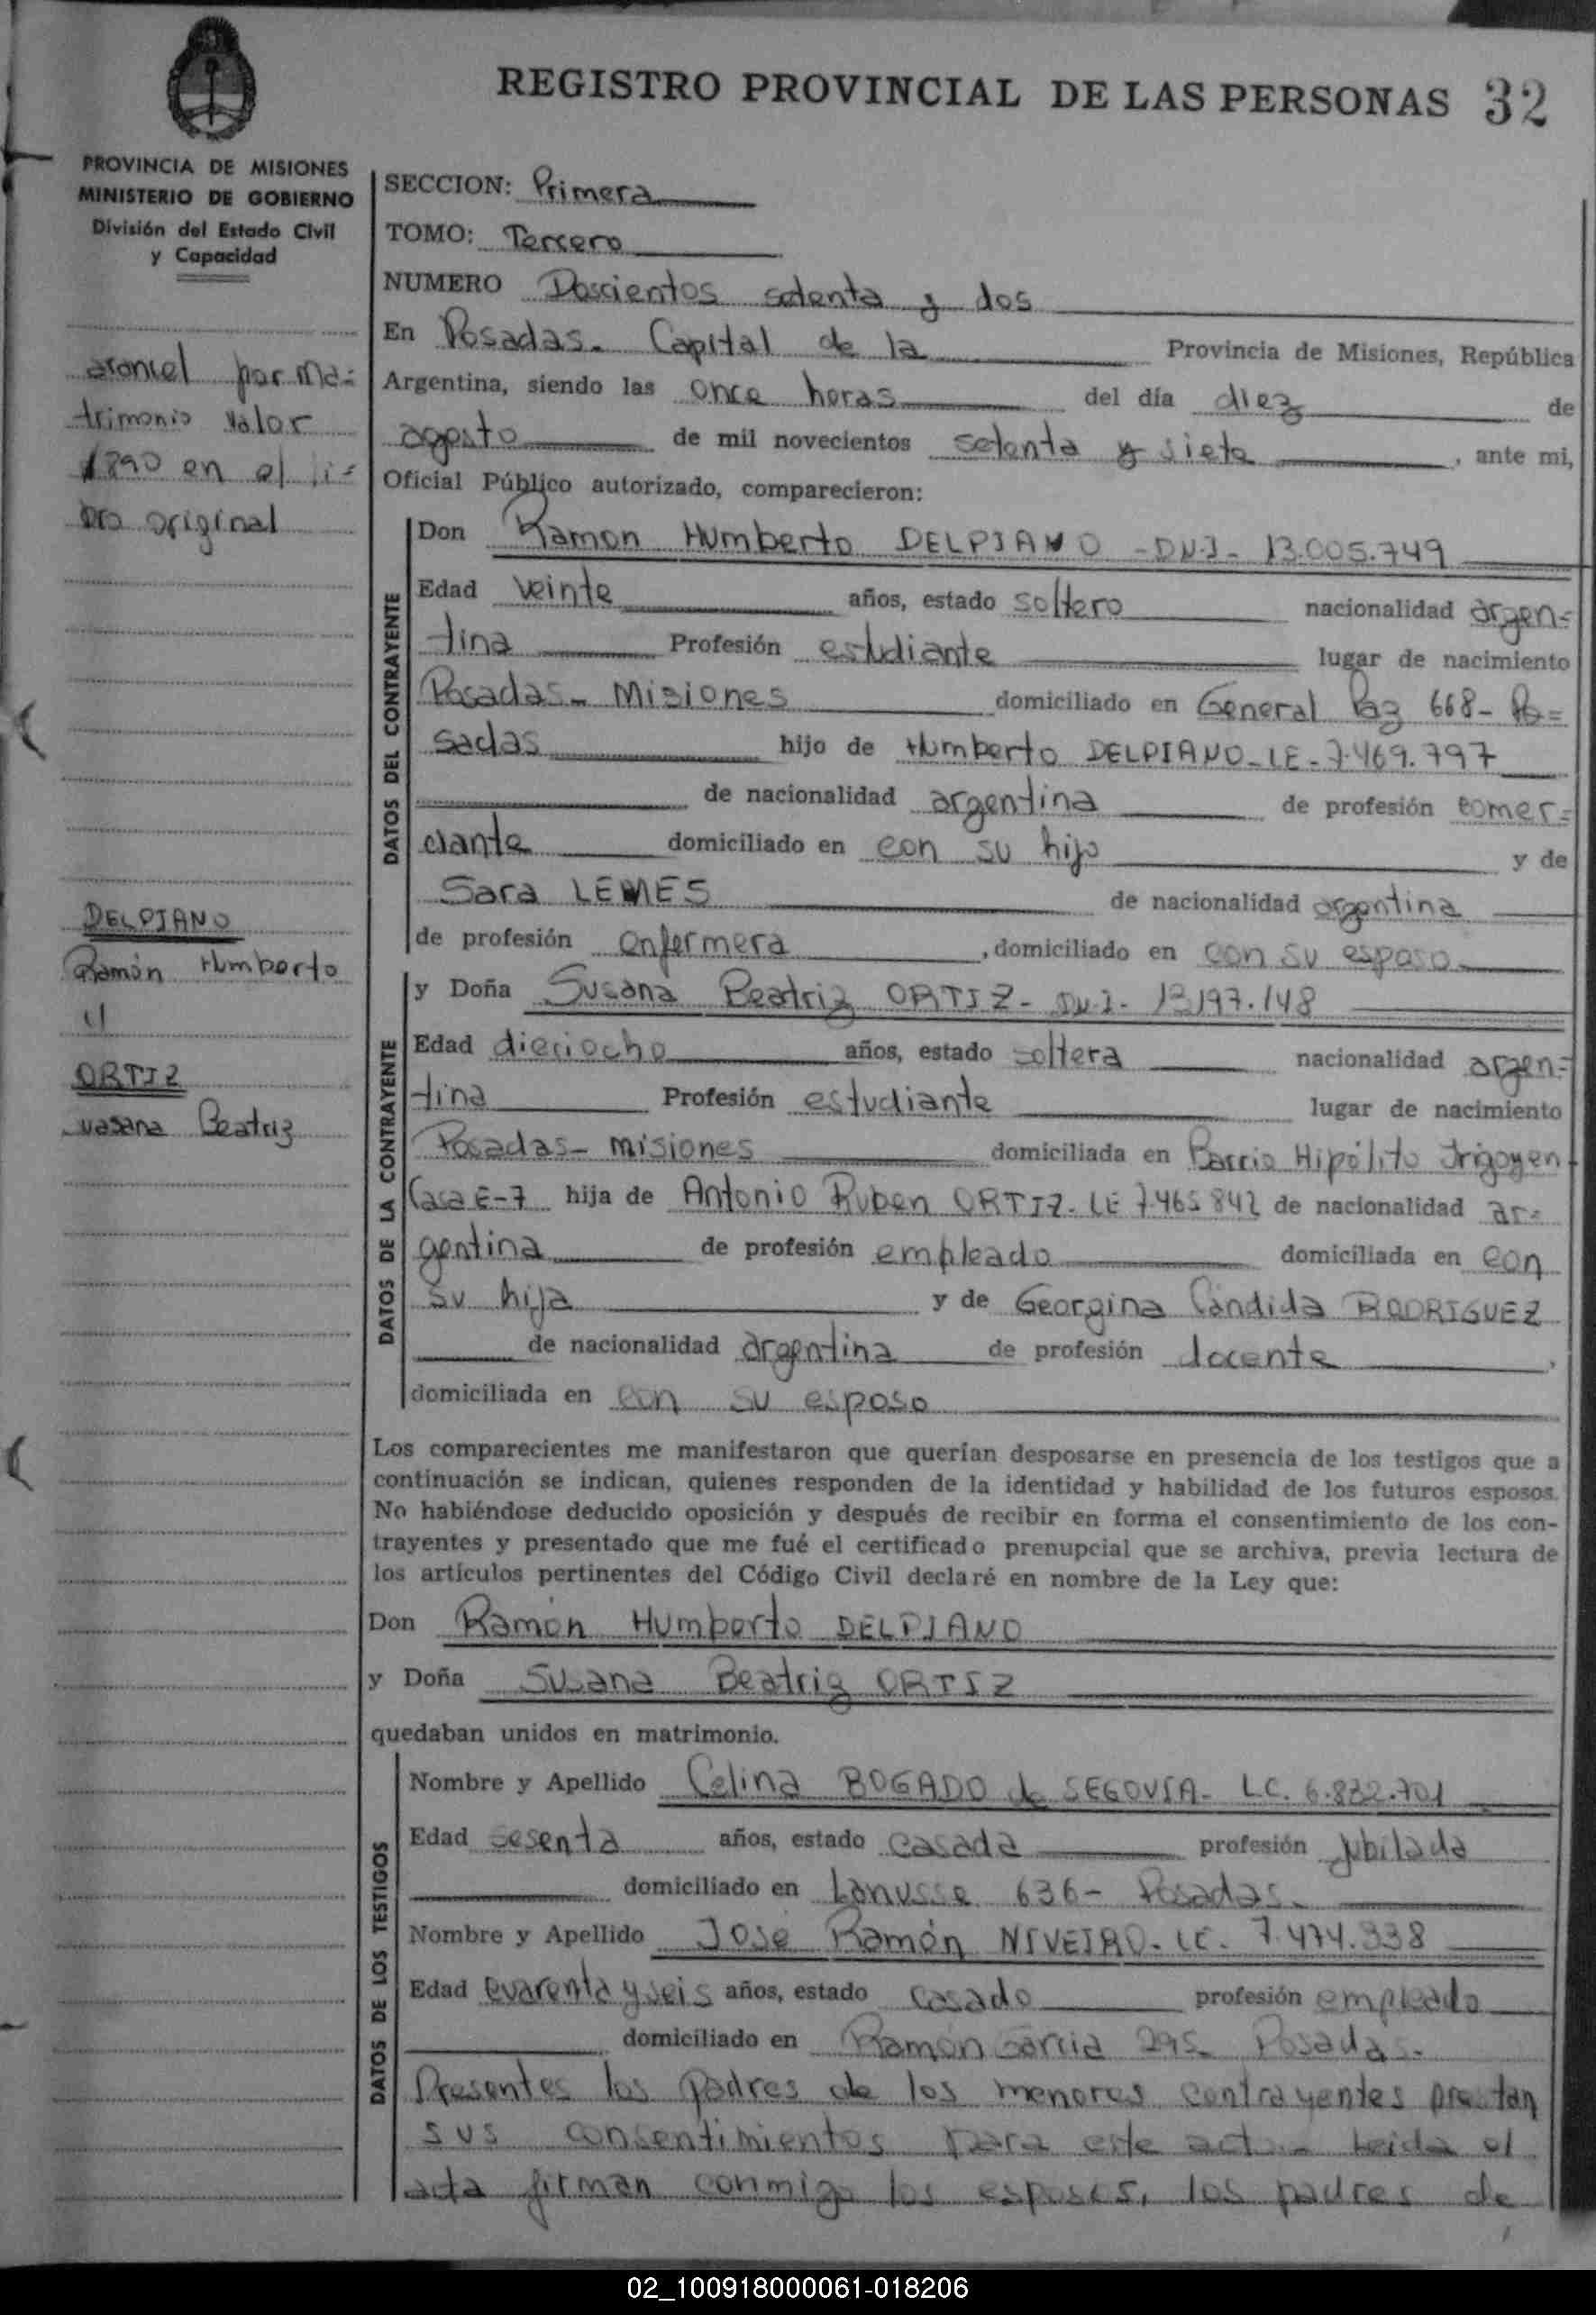 REGISTRO PROVINCIAL DE LAS PERSONAS 32
PROVINCIA DE MISIONES
MINISTERIO DE GOBIERNO
División del Estado Civil
y Capacidad
arancel por ma=
trimonio valor
1890 en el li=
bro original
DELPIANO
Ramón Humberto
y
ORTIZ
Susana Beatriz
SECCION: Primera
TOMO: Tercero
NUMERO Doscientos setenta y dos
En Posadas. Capital de la Provincia de Misiones, República
Argentina, siendo las once horas del día diez de
agosto de mil novecientos setenta y siete, ante mi,
Oficial Público autorizado, comparecieron:
DATOS DEL CONTRAYENTE
Don Ramon Humberto DELPIANO - DN.I- 13.005.749
Edad veinte años, estado soltero nacionalidad argen=
tina Profesión estudiante lugar de nacimiento
Posadas- Misiones domiciliado en General Paz 668- Po=
sadas hijo de Humberto DELPIANO-LE-7.469.797
de nacionalidad argentina de profesión comer=
ciante domiciliado en con su hijo y de
Sara LEMES de nacionalidad argentina
de profesión enfermera, domiciliado en con su esposo
DATOS DE LA CONTRAYENTE
y Doña Susana Beatriz ORTIZ- DN.I- 13197.148
Edad dieciocho años, estado soltera nacionalidad argen=
tina Profesión estudiante lugar de nacimiento
Posadas- misiones domiciliada en Barrio Hipólito Irigoyen
Casa E-7 hija de Antonio Ruben ORTIZ- LE 7.465 842 de nacionalidad ar=
gentina de profesión empleado domiciliada en con
su hija y de Georgina Candida RODRIGUEZ
de nacionalidad argentina de profesión docente,
domiciliada en con su esposo
Los comparecientes me manifestaron que querían desposarse en presencia de los testigos que a
continuación se indican, quienes responden de la identidad y habilidad de los futuros esposos.
No habiéndose deducido oposición y después de recibir en forma el consentimiento de los con-
trayentes y presentado que me fué el certificado prenupcial que se archiva, previa lectura de
los artículos pertinentes del Código Civil declaré en nombre de la Ley que:
Don Ramón Humberto DELPIANO
y Doña Susana Beatriz ORTIZ
quedaban unidos en matrimonio.
DATOS DE LOS TESTIGOS
Nombre y Apellido Celina BOGADO de SEGOVIA- LC. 6.832.701
Edad sesenta años, estado casada profesión jubilada
domiciliado en Lanusse 636- Posadas.
Nombre y Apellido José Ramón NIVEIRO- LE- 7.474.338
Edad cuarenta y seis años, estado casado profesión empleado
domiciliado en Ramón Garcia 295- Posadas.
Presentes los padres de los menores contrayentes prestan
sus consentimientos para este acto. Leida el
acta firman conmigo los esposos, los padres de
02_100918000061-018206